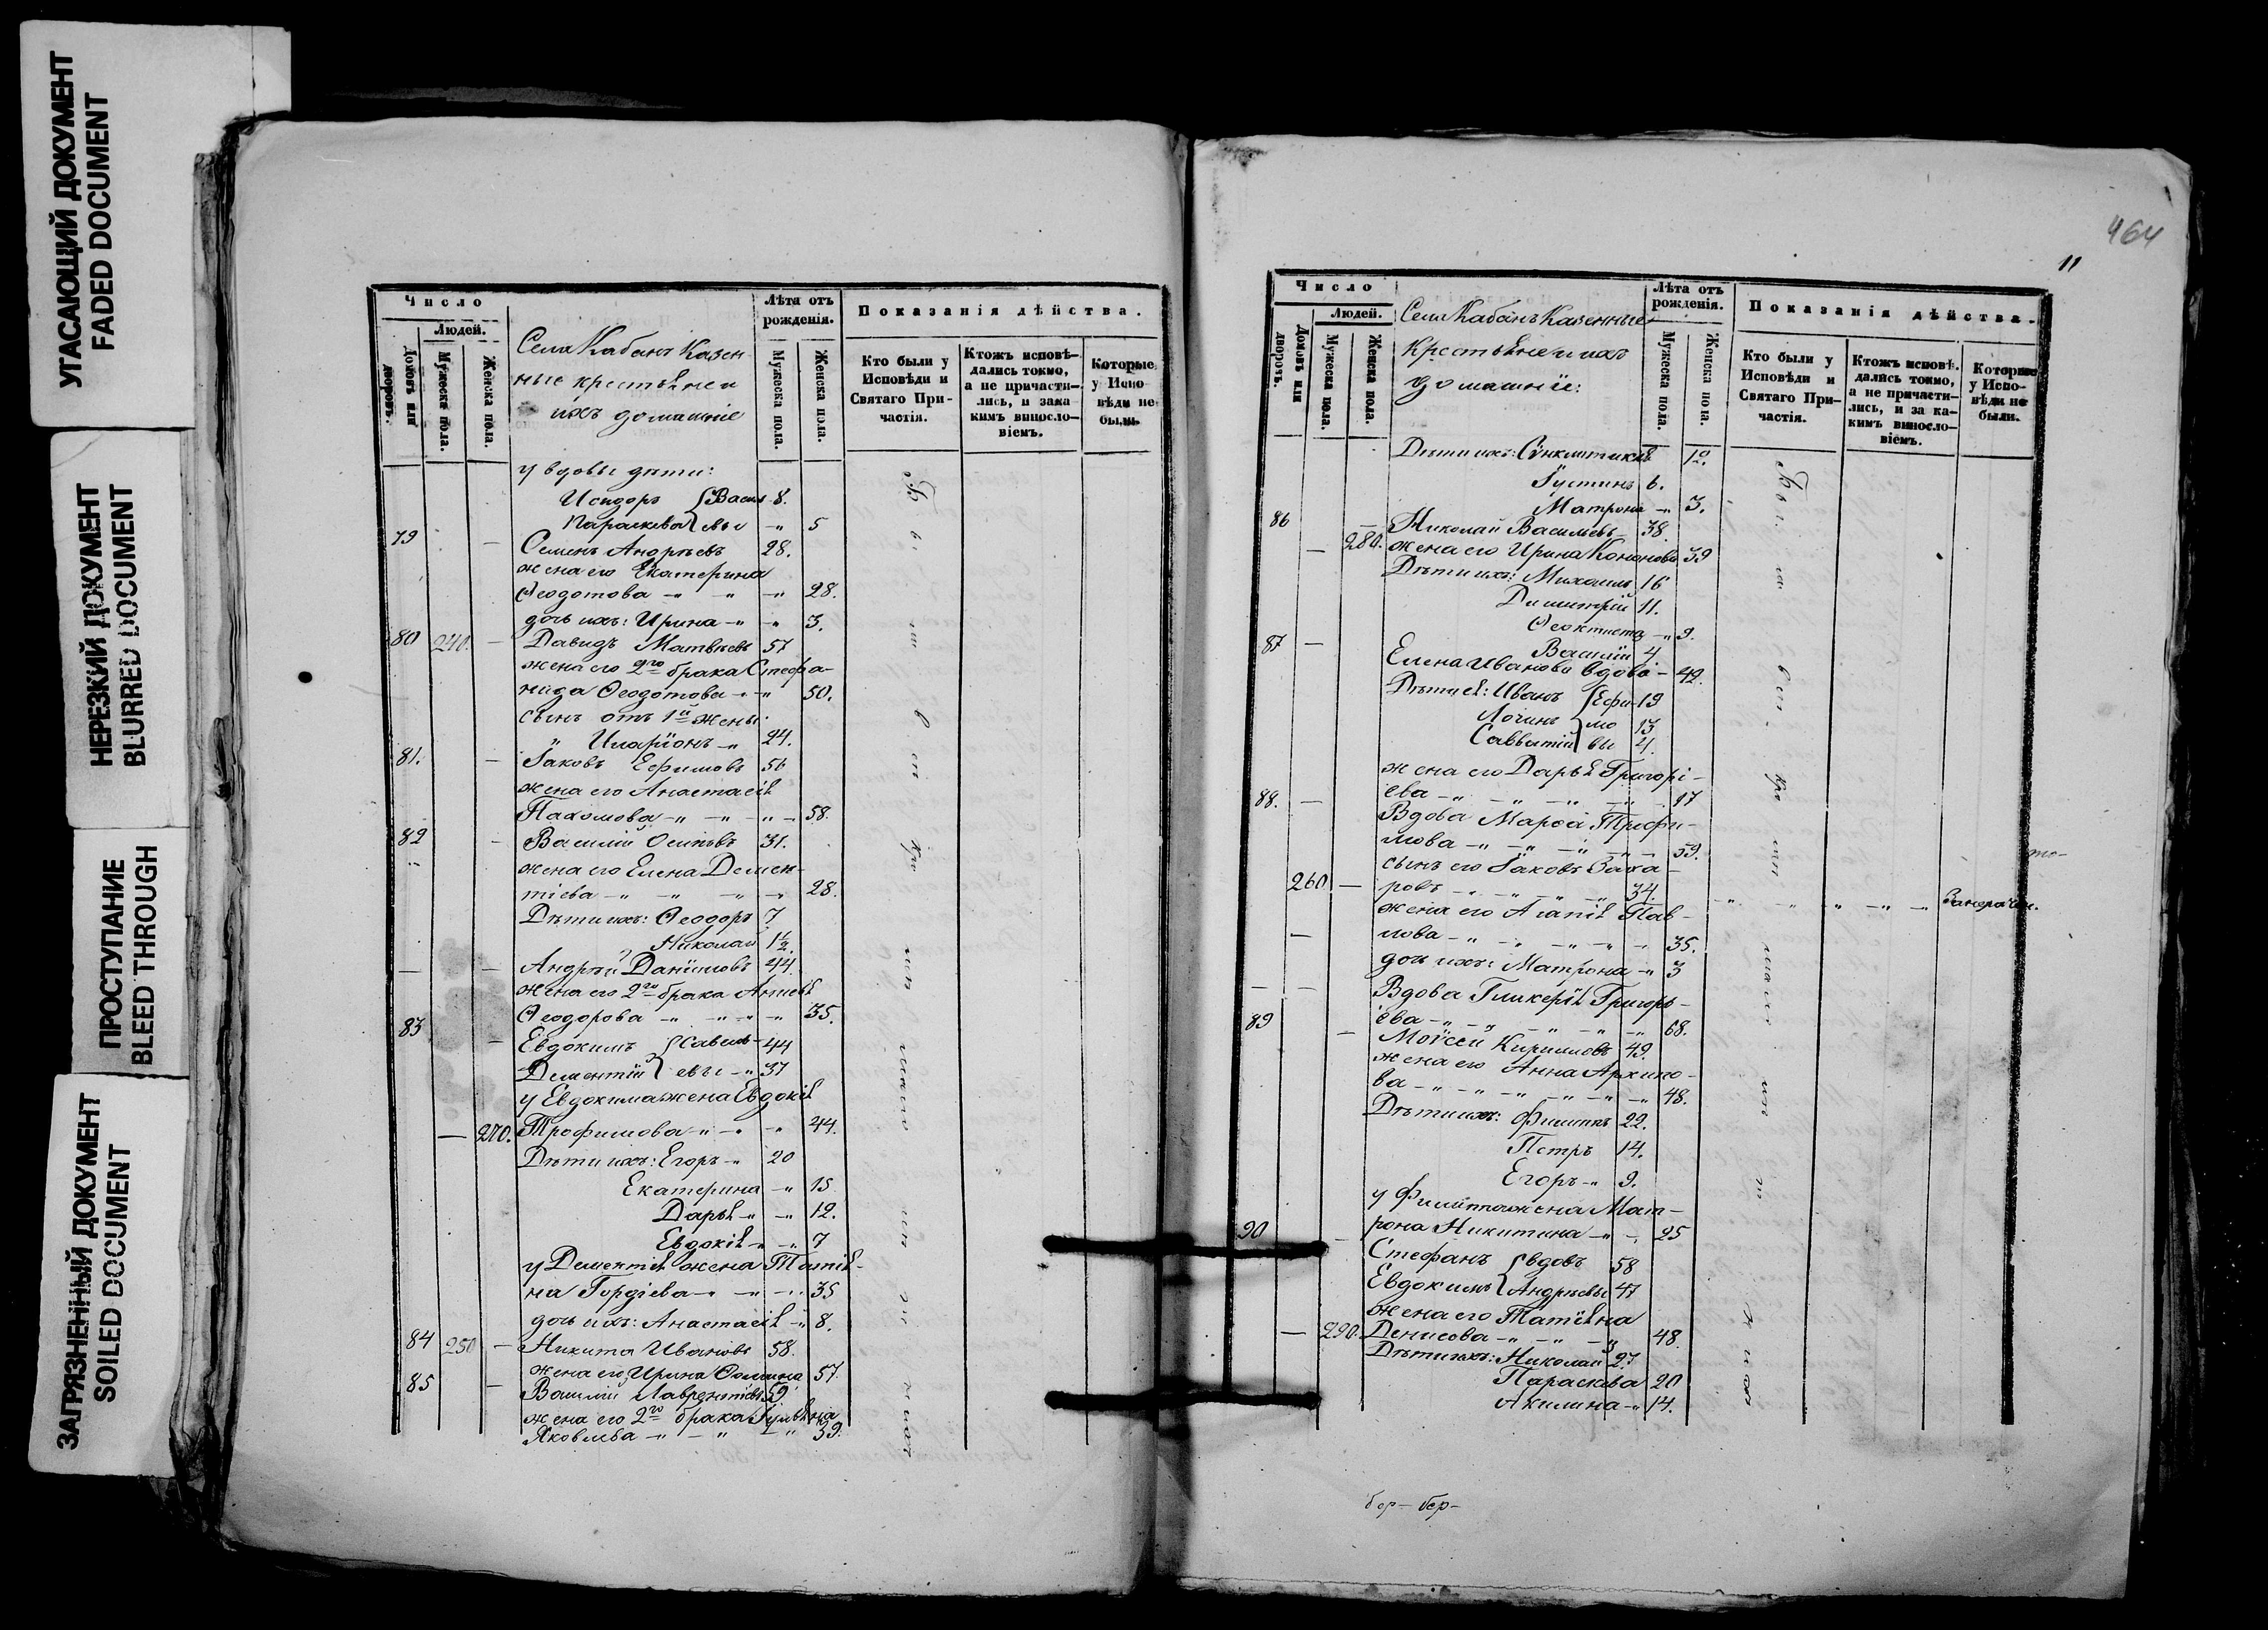 УГАСАЮЩИЙ ДОКУМЕНТ
FADED DOCUMENT
НЕРЕЗКИЙ ДОКУМЕНТ
BLURRED DOCUMENT
ПРОСТУПАНИЕ
BLEED THROUGH
ЗАГРЯЗНЕННЫЙ ДОКУМЕНТ
SOILED DOCUMENT
Число
Людей.
Домовъ или дворовъ.
Мужеска пола.
Женска пола.
Села Кабанъ Казен
ные крестьяне и
ихъ домашніе
Лѣта отъ рожденія.
Мужеска пола.
Женска пола.
Показанія дѣйства.
Кто были у Исповѣди и Святаго Причастія.
Ктожъ исповѣдались токмо, а не причастились, и за какимъ винословіемъ.
Которые у Исповѣди не были.
у вдовы дѣти:
Исидоръ Василь 8.
Параскева евы -"- 5
79 Семенъ Андрѣевъ 28.
жена его Екатерина
Ѳеодотова -"- 28.
дочь ихъ: Ирина -"- 3.
80 240. Давидъ Матвѣевъ 57
жена его 2го брака Стефа-
нида Ѳеодотова -"- 50.
сынъ отъ 1й жены
" Иларіонъ -"- 24.
81. Іаковъ Ефимовъ 56
жена его Анастасія
Пахомова -"- 58.
82 Василій Осиповъ 31.
жена его Елена Демен-
тіева -"- 28.
Дѣти ихъ: Ѳеодоръ 7
Николай 1 1/2
Андрей Даніиловъ 44.
жена его 2го брака
Ѳеодорова -"- 35.
83 Евдокимъ Савель- 44
Дементій евы -"- 37
у Евдокима жена Евдокія
270. Трофимова -"- 44.
Дѣти ихъ: Егоръ -"- 20
Екатерина -"- 15
Дарья -"- 12.
Евдокія -"- 7
у Дементія жена Татія-
на Гордіева -"- 35
дочь ихъ: Анастасія -"- 8.
84 250 Никита Ивановъ 58.
жена его Ирина Ѳомина 57.
85 Василій Лаврентіевъ 59
жена его 2го брака Іуліяна
Яковлева -"- 39.
464
11
Число
Людей.
Домовъ или дворовъ.
Мужеска пола.
Женска пола.
Села Кабанъ Казенные
крестьяне и ихъ
домашніи:
Лѣта отъ рожденія.
Мужеска пола.
Женска пола.
Показанія дѣйства.
Кто были у Исповѣди и Святаго Причастія.
Ктожъ исповѣдались токмо, а не причастились, и за какимъ винословіемъ.
Которые у Исповѣди не были.
Дѣти ихъ: Синклитикія 12.
Іустинъ 6.
Матрона -"- 3.
86 Николай Васильевъ 38.
280. жена его Ирина Кононова 39
Дѣти ихъ: Михаилъ 16
Димитрій 11.
Ѳеоктиста -"- 9.
Василій 4.
87 Елена Иванова вдова - 42.
Дѣти ея: Иванъ Ефи- 19
Логинъ мо 13
Савватій вы 4.
жена его Дарья Григорі-
ева -"- 17
88. Вдова Марѳа Трофи-
мова -"- 59.
сынъ его Іаковъ Заха-
260 ровъ -"- 34.
жена его Агапія Пав-
лова -"- 35.
дочь ихъ: Матрона -"- 3
Вдова Гликерія Григорь-
ева -"- 68.
89 Моѵсей Кирилловъ 49.
жена его Анна Архипо-
ва -"- 48.
Дѣти ихъ: Филиппъ 22.
Петръ 14.
Егоръ -"- 9.
у Филиппа жена Мат-
рона Никитина -"- 25
90 Стефанъ вдовъ 58
Евдокимъ Андрѣевы 47
жена его Татіяна
290. Денисова -"- 48.
Дѣти ихъ: Николай 27
Параскева 20
Акилина -"- 14.
бер- бер-